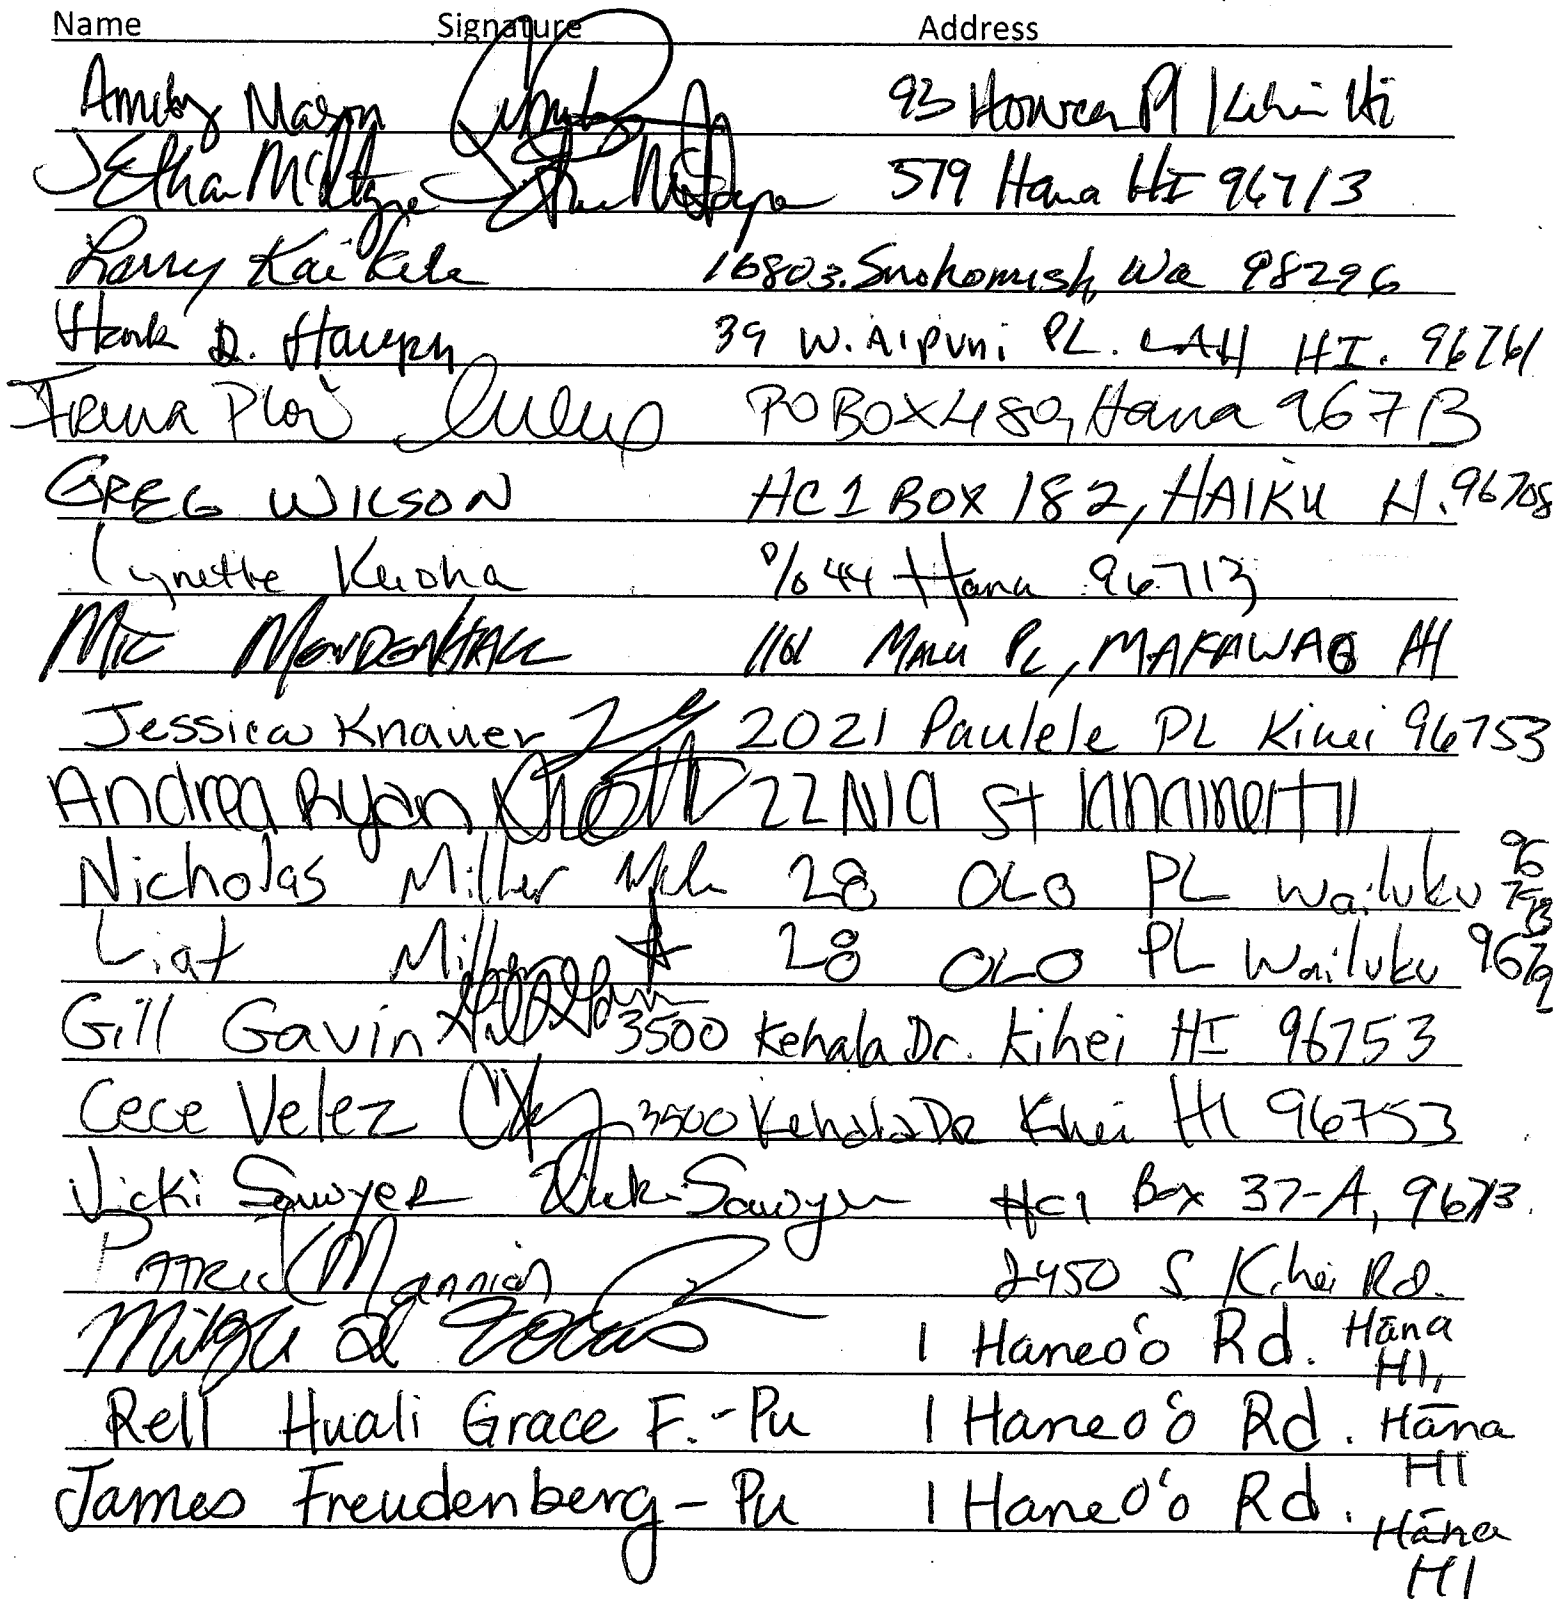 Name Signature Address
Mason 93 Pl Kihei Hi
J Ethan McIntyre 579 Hana HI 96713
Larry Kai Kala 16803. Snohomish, Wa 98296
Hank D. 39 W. Aipuni PL. LAH HI. 96761
PO BOX 480, Hana 96713
GREG WILSON HC 1 BOX 182, HAIKU H. 96708
Lynette Keoha % 44 Hana 96713
MIC MENDENHALL MALU PL, MAKAWAO HI
Jessica Knauer 2021 Paulele PL Kihei 96753
Andrea Ryan 22 NIA St
Nicholas Miller 28 OLO PL Wailuku
Liat Miller 28 OLO PL Wailuku
Gill Gavin 3500 Kehala Dr. Kihei HI 96753
Cece Velez 3500 Kehala DR Kihei HI 96753
Vicki Sawyer Vicki Sawyer HC1 Box 37-A, 96713.
Patrick Mannion 2450 S. Kihei Rd.
1 Haneo'o Rd. Hāna HI,
Rell Huali Grace F.-Pu 1 Haneo'o Rd. Hāna HI
James Freudenberg-Pu 1 Haneo'o Rd. Hāna HI